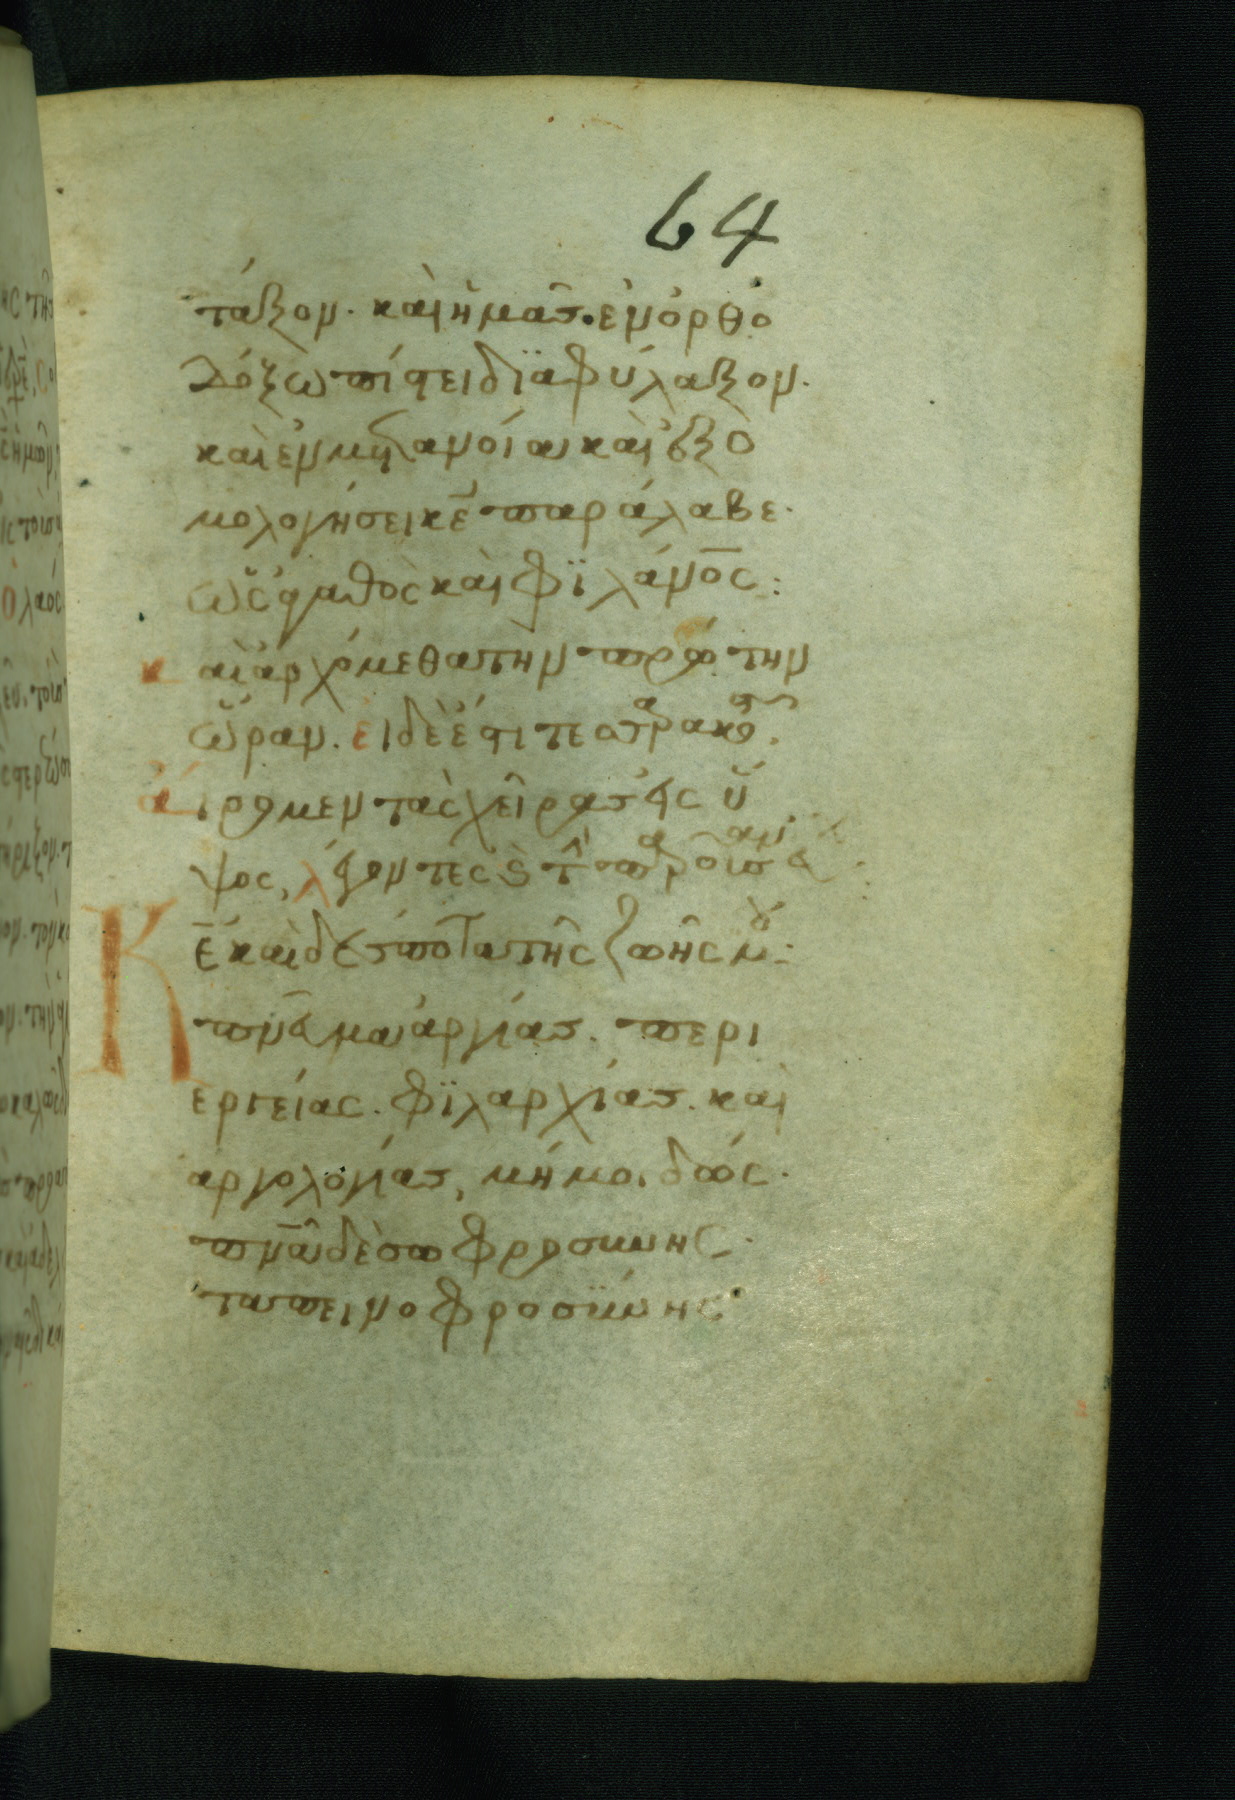 64
ταξον· καὶ ἡμᾶς ἐν ὀρθο
δόξω πίστει διαφύλαξον·
καὶ ἐν μετανοία καὶ ἐξο
μολογήσει κ̅ε̅ παράλαβε·
ὡς ἀγαθὸς καὶ φϊλάν̅ο̅ς:
καὶ ἀρχόμεθα τὴν πρώτην
ὥραν. εἰ δὲ ἐστι
αἴρομεν τὰς χεῖρας εἰς ὕ
ψος, λέγοντες
Κ̅ε̅ καὶ δέσποτα τῆς ζωῆς μου:
π̅ν̅α̅ ἀργίας. περι
εργείας. φϊλαρχίας. καὶ
ἀργολογίας, μή μοι δώς·
π̅ν̅α̅ δὲ σωφροσύνης·
ταπεινοφροσύνης